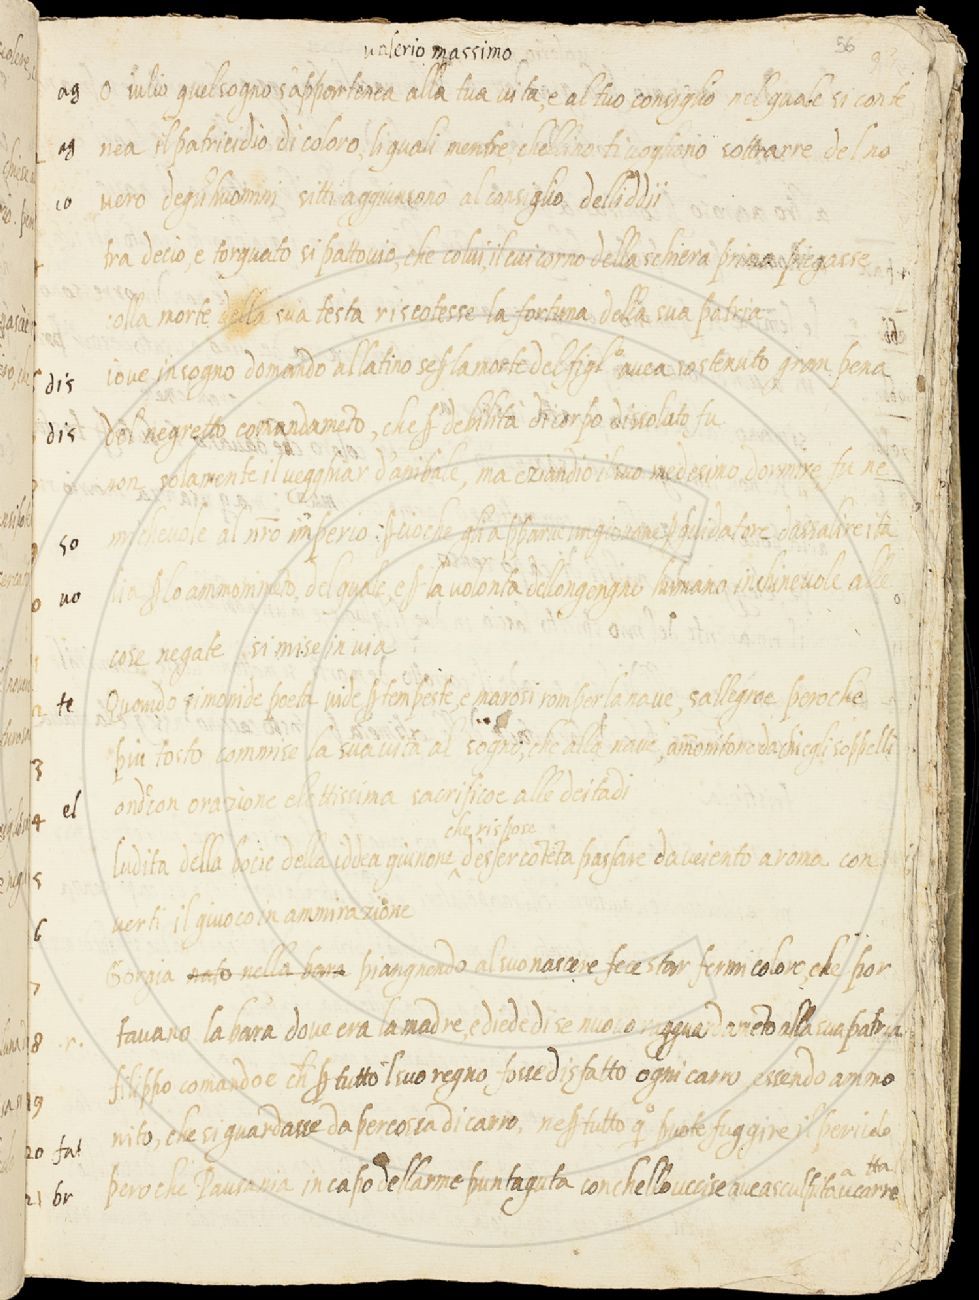 valerio massimo
56
ag O iulio quel sogno s'appartenea alla tua vita, e al tuo consiglio nel quale si conte
ag nea il patricidio di coloro, li quali mentre, chellino ti vogliono sottrarre del no
io vero degli huomini sitti aggiunsono al consiglio delli ddii
tra decio, e torquato si pattovio, che colui, il cui corno della schiera prima piegasse
colla morte della sua testa riscotesse la fortuna della sua patria
dis iove in sogno domando allatino se la morte del figlo avea sostenuto gran pena
dis del negretto comandameto, che debilita di corpo dissoluto fu
non solamente il vegghiar d'anibale, ma eziandio il suo medesimo dormire fu ne
so michevole al nro imperio: voche gli apparve un giovane guidatore dassalire ita
vo lia lo ammonimeto, del quale, e la volonta dellongengno humano inchinevole alle
cose negate si mise in via
te Quando simonide poeta vide tempeste, e marosi romper la nave, sallegroe peroche
3 piu tosto commise la sua vita al sogno, che alla nave, ammonitone da chi egli soppelli
4 el onde con orazione elettissima sacrificoe alle deitadi
che rispose
5 ludita della bocie della iddea giunone, desser coteta passare da veiento a roma con
6 verti il giuoco in ammirazione
7 Gorgia nato nella bara piangnendo al suo nascere fece star fermi coloro, che por
8 .r. tavano la bara dove era la madre, e diede di se nuovo ragguardameto alla sua patria
19 filippo comandoe ch tutto 'l suo regno fosse disfatto ogni carro, essendo ammo
20 fat nito, che si guardasse da percossa di carro, ne tutto q pote fuggire il pericolo
21 br peroche Pausania in capo dellarme puntaguta con chello uccise avea sculpita u carre
a tta